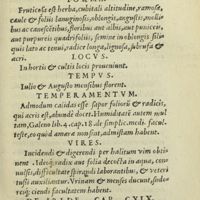 Fruticosa est herba, cubitali altitudine, ramosa,
caule & folijs lanuginosis, oblongis, augustis, molli-
bus ac canescētibus, floribus aut albis, aut puniceis,
aut purpureis quadrifolijs, semine in oblongis sili-
quis lato ac tenui, radice longa, lignosa, subrufa &
acri.
LOCVS.
In hortis & cultis locis proueniunt.
TEMPVS.
Iulio & Augusto mensibus florent.
TEMPERAMENTVM.
Admodum calidas esse sapor foliorū & radicis,
qui acris est, abundè docet. Humiditatē autem mul
tam, Galeno lib. 4. cap. 18. de simplic. medi. facul.
teste, eo quòd amaræ non sint, admistam habent.
VIRES.
Incidendi & digerendi per halitum vim obtinent
Ideoq; radix aut folia decocta in aqua, con-
uulsis, difficultate spirandi laborantibus, & vetera
tussi auxiliantur. Vrinam & menses ducunt, sudo-
resq; ciendi facultatem habent.
CAP. CXIX.